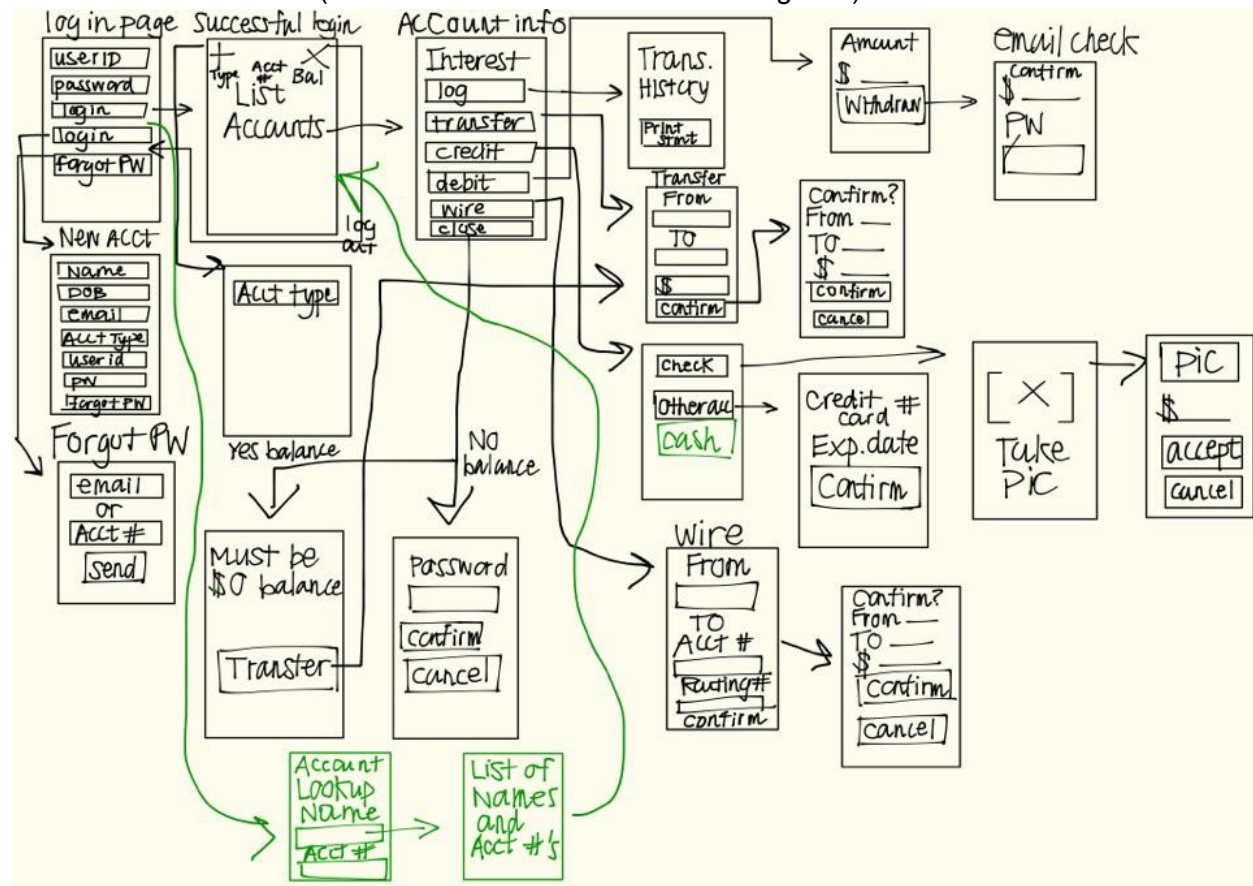 log in page
userID
password
login
login
forgot PW
Successful login
+ X
Type Acct # Bal
List
Accounts
log
out
Account info
Interest
log
transfer
credit
debit
wire
close
Trans.
History
Print
stmt
Amount
$ ___
Withdraw
email check
Confirm
$ ___
PW
Transfer
From
TO
$
confirm
Confirm?
From ___
TO ___
$ ___
confirm
cancel
New Acct
Name
DOB
email
Acct Type
user id
PW
forgot PW
Acct type
check
Other acc
cash
Credit #
card
Exp. date
Confirm
[X]
Take
Pic
PiC
$ ___
accept
cancel
Forgot PW
email
or
Acct #
send
Yes balance
NO
balance
Must be
$0 balance
Transfer
Password
confirm
cancel
Wire
From
TO
Acct #
Routing#
confirm
Confirm?
From ___
TO ___
$ ___
Confirm
cancel
Account
Lookup
Name
Acct #
List of
Names
and
Acct #'s